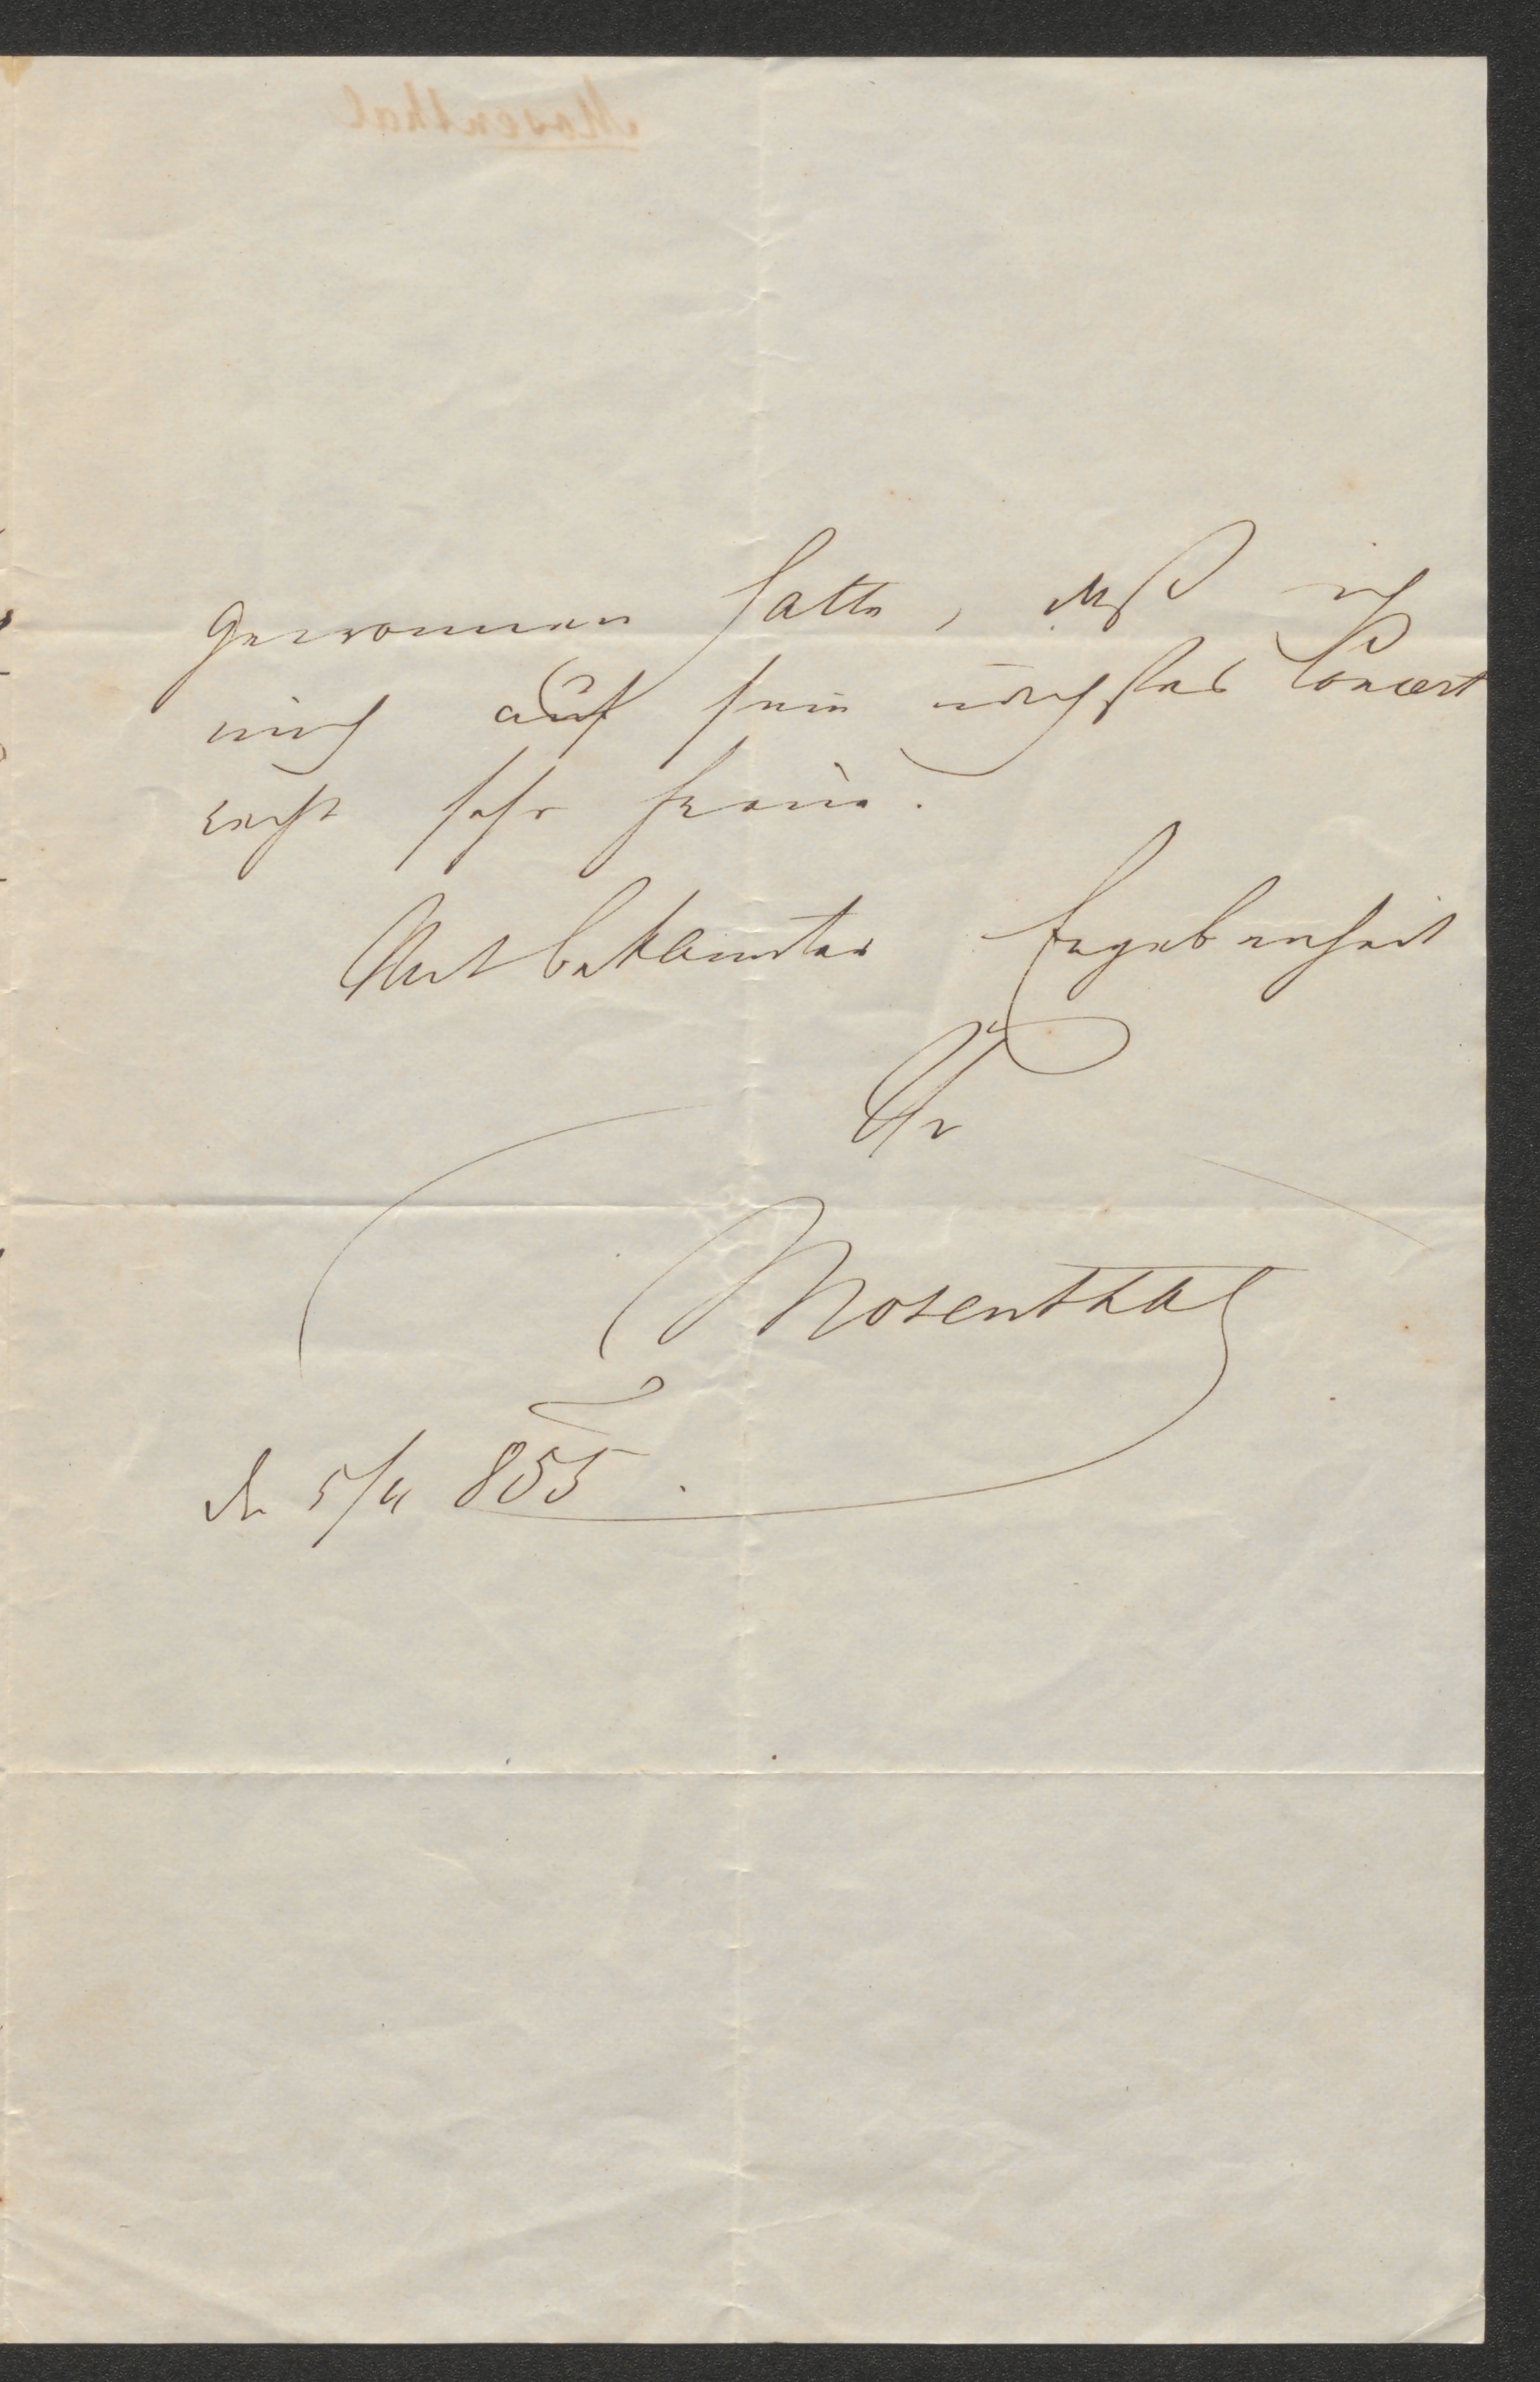 Mosenthal
gewonnen hatte, daß ich
mich auf sein nächstes Concert
recht sehr freue.
Mit bekannter Ergebenheit
Ihr
Mosenthal
den 5/4 855.